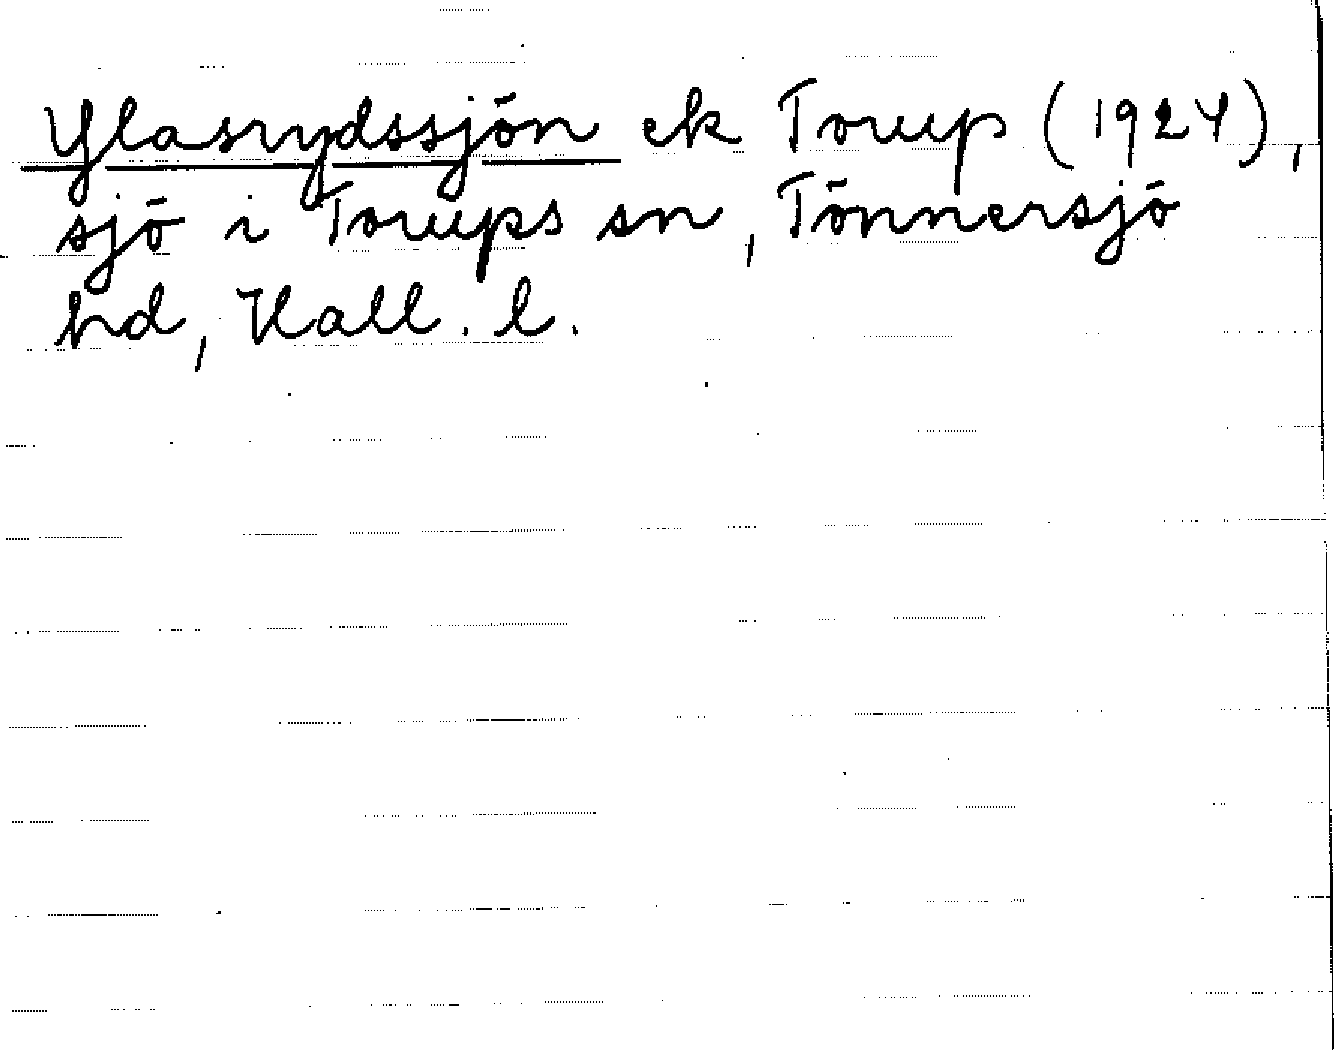 Ylasrydssjön ek Torup (1924),
sjö i Torups sn, Tönnersjö
hd, Hall. l.